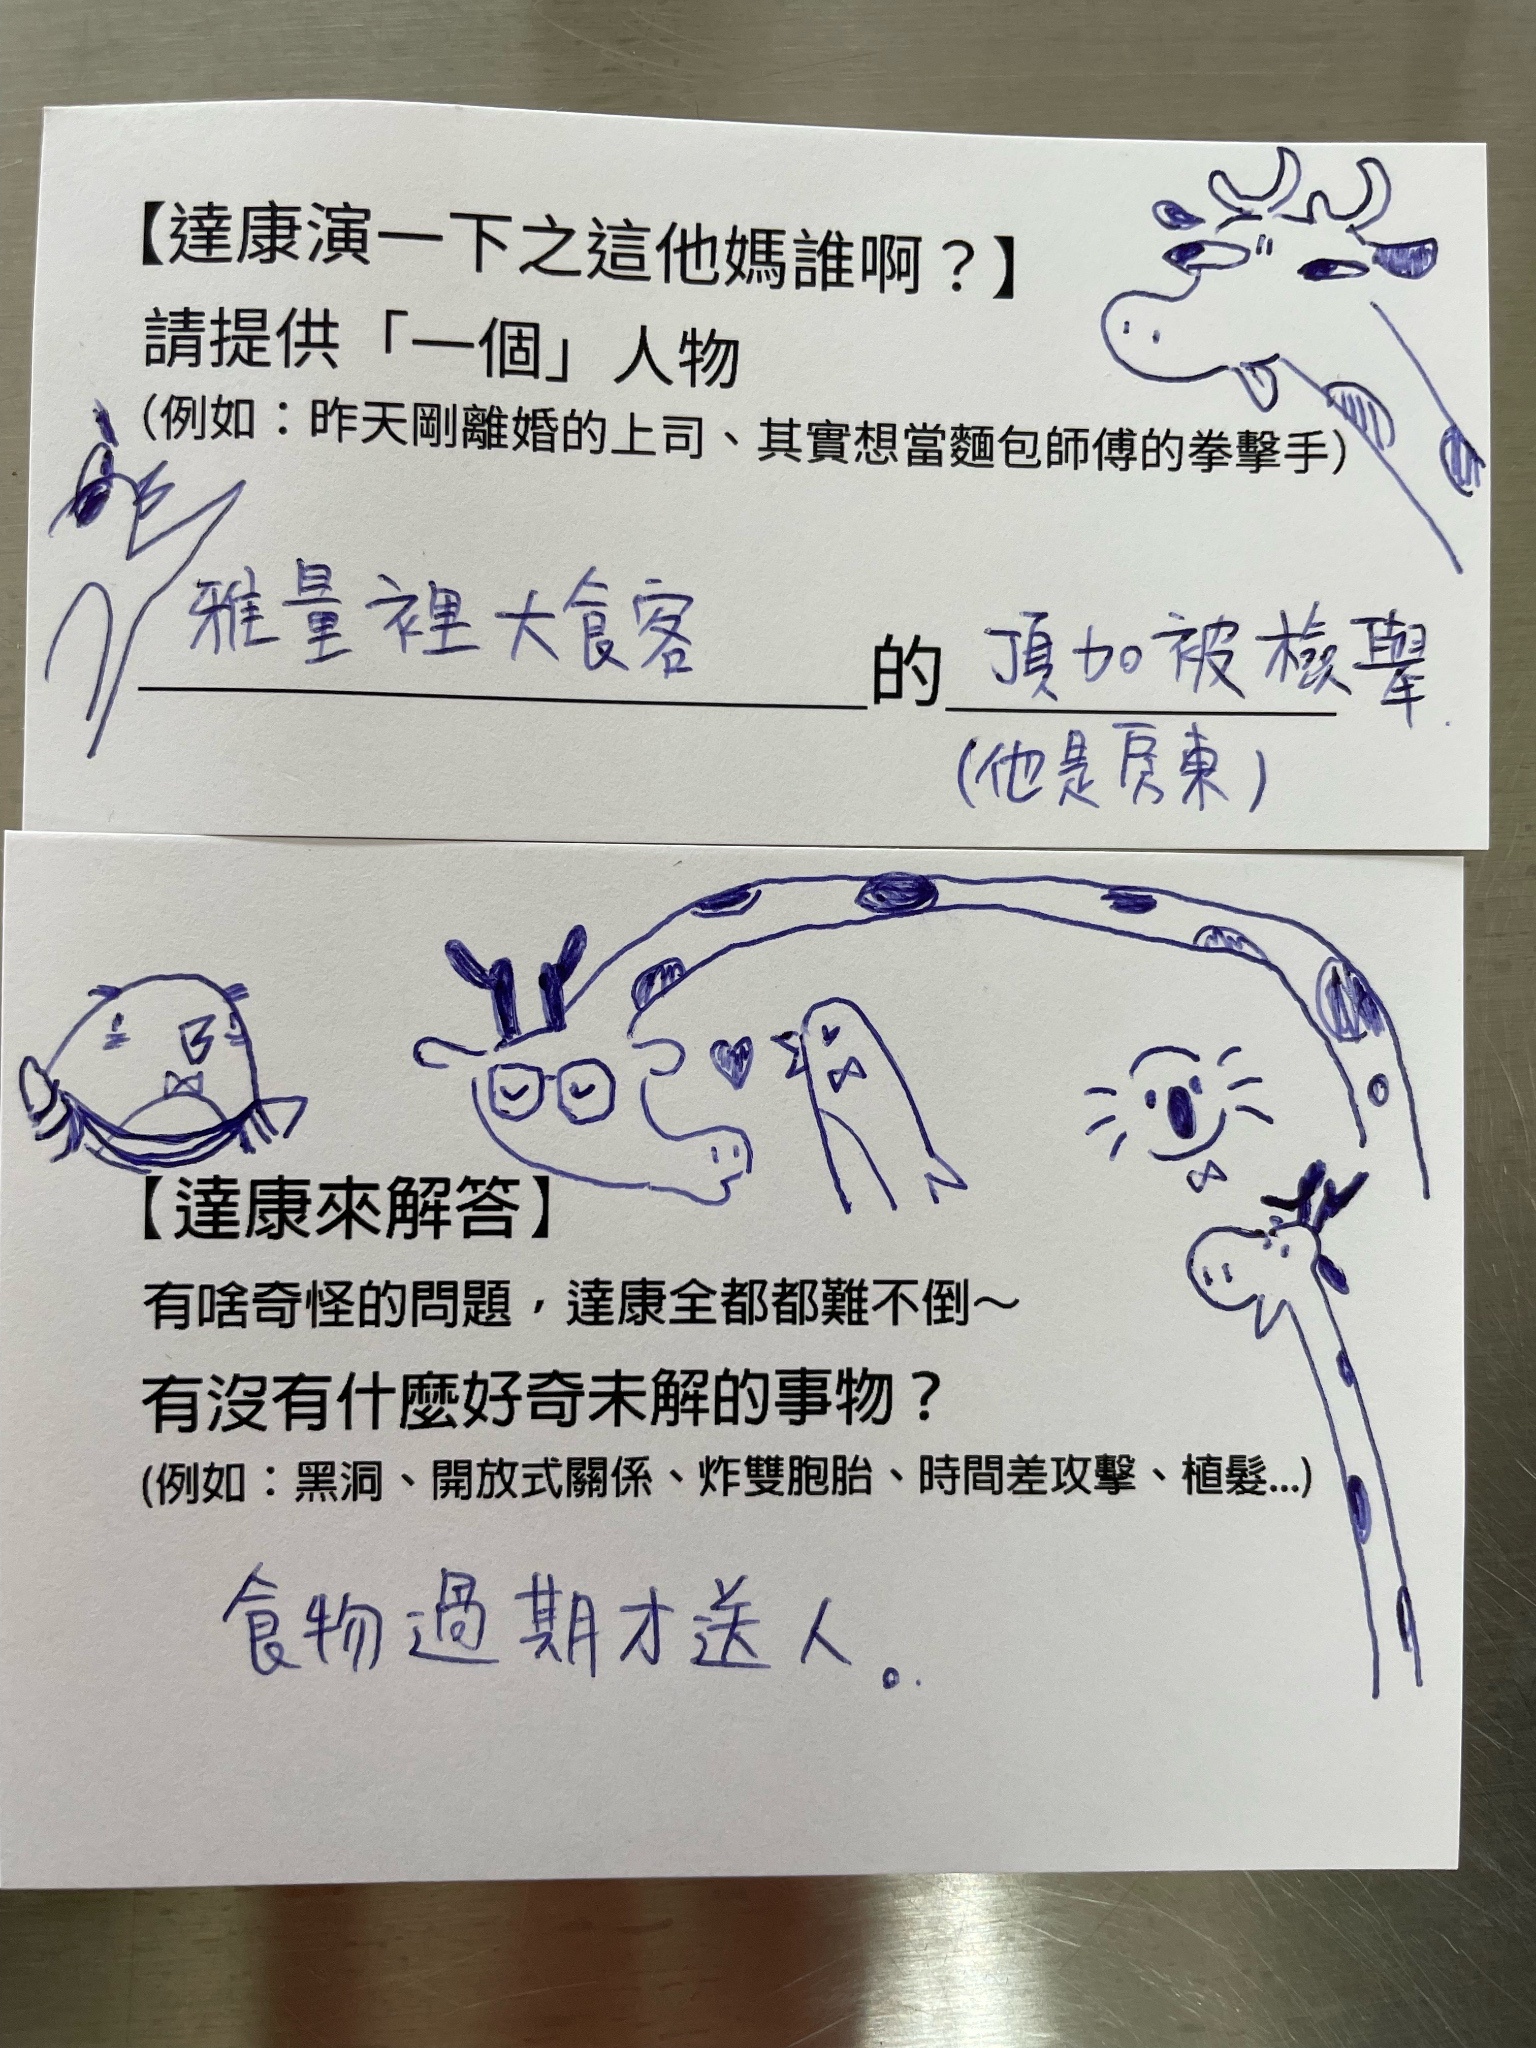 【達康演一下之這他媽誰啊？】
請提供「一個」人物
（例如：昨天剛離婚的上司、其實想當麵包師傅的拳擊手）
雅量裡大食客的頂加被檢舉.
(他是房東)
【達康來解答】
有啥奇怪的問題，達康全都都難不倒～
有沒有什麼好奇未解的事物？
(例如：黑洞、開放式關係、炸雙胞胎、時間差攻擊、植髮...)
食物過期才送人。